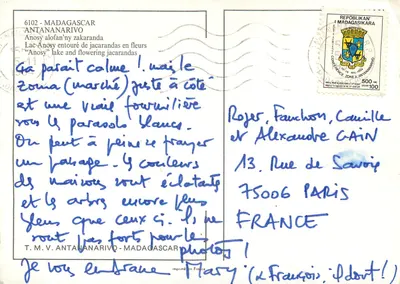 6102 - MADAGASCAR
ANTANANARIVO
Anosy alofan'ny zakaranda
Lac Anosy entouré de jacarandas en fleurs
"Anosy" lake and flowering jacarandas
Ça parait calme ! mais le
Zoma (marché) juste à côté
est une vraie fourmilière
sous les parasols blancs.
On peut à peine se frayer
un passage. les couleurs
des maisons sont éclatantes
et les arbres encore plus
bleus que ceux ci. Ils ne
sont pas forts pour les
photos !
Je vous embrasse Mary (& François, il dort !)
T. M. V. ANTANANARIVO - MADAGASCAR
REPOBLIKAN'
I MADAGASIKARA
500
100
Roger, Fanchon, Camille
et Alexandre GAIN
13. Rue de Savoie
75006 PARIS
FRANCE